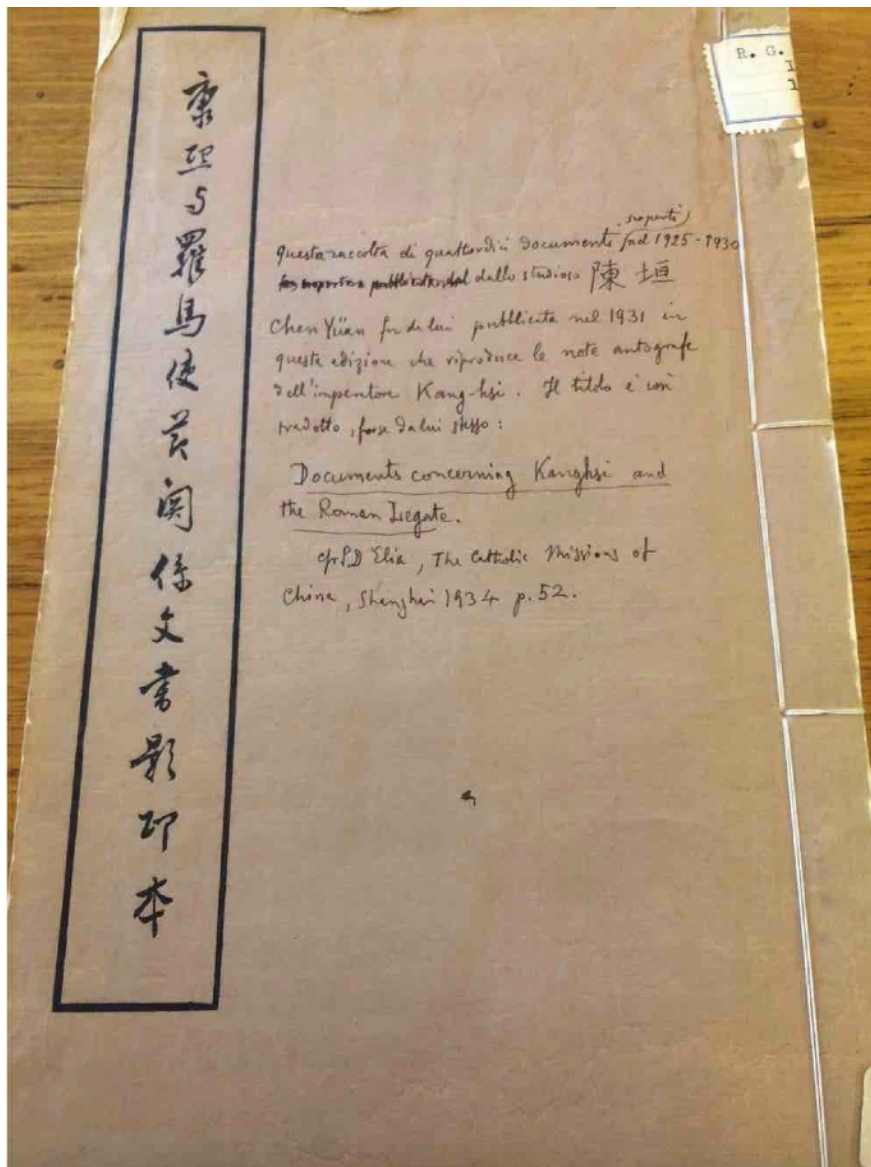 康熙与羅馬使节関係文書影印本
R. G.
scoperti
Questa raccolta di quattordici documenti nel 1925-1930
dallo studioso 陳垣
Chen Yüan fu da lui pubblicata nel 1931 in
questa edizione che riproduce le note autografe
dell'imperatore Kang-hsi. Il titolo è così
tradotto, forse da lui stesso:
Documents concerning Kanghsi and
the Roman Legate.
cfr P.D'Elia, The Catholic Missions of
China, Shanghai 1934 p. 52.